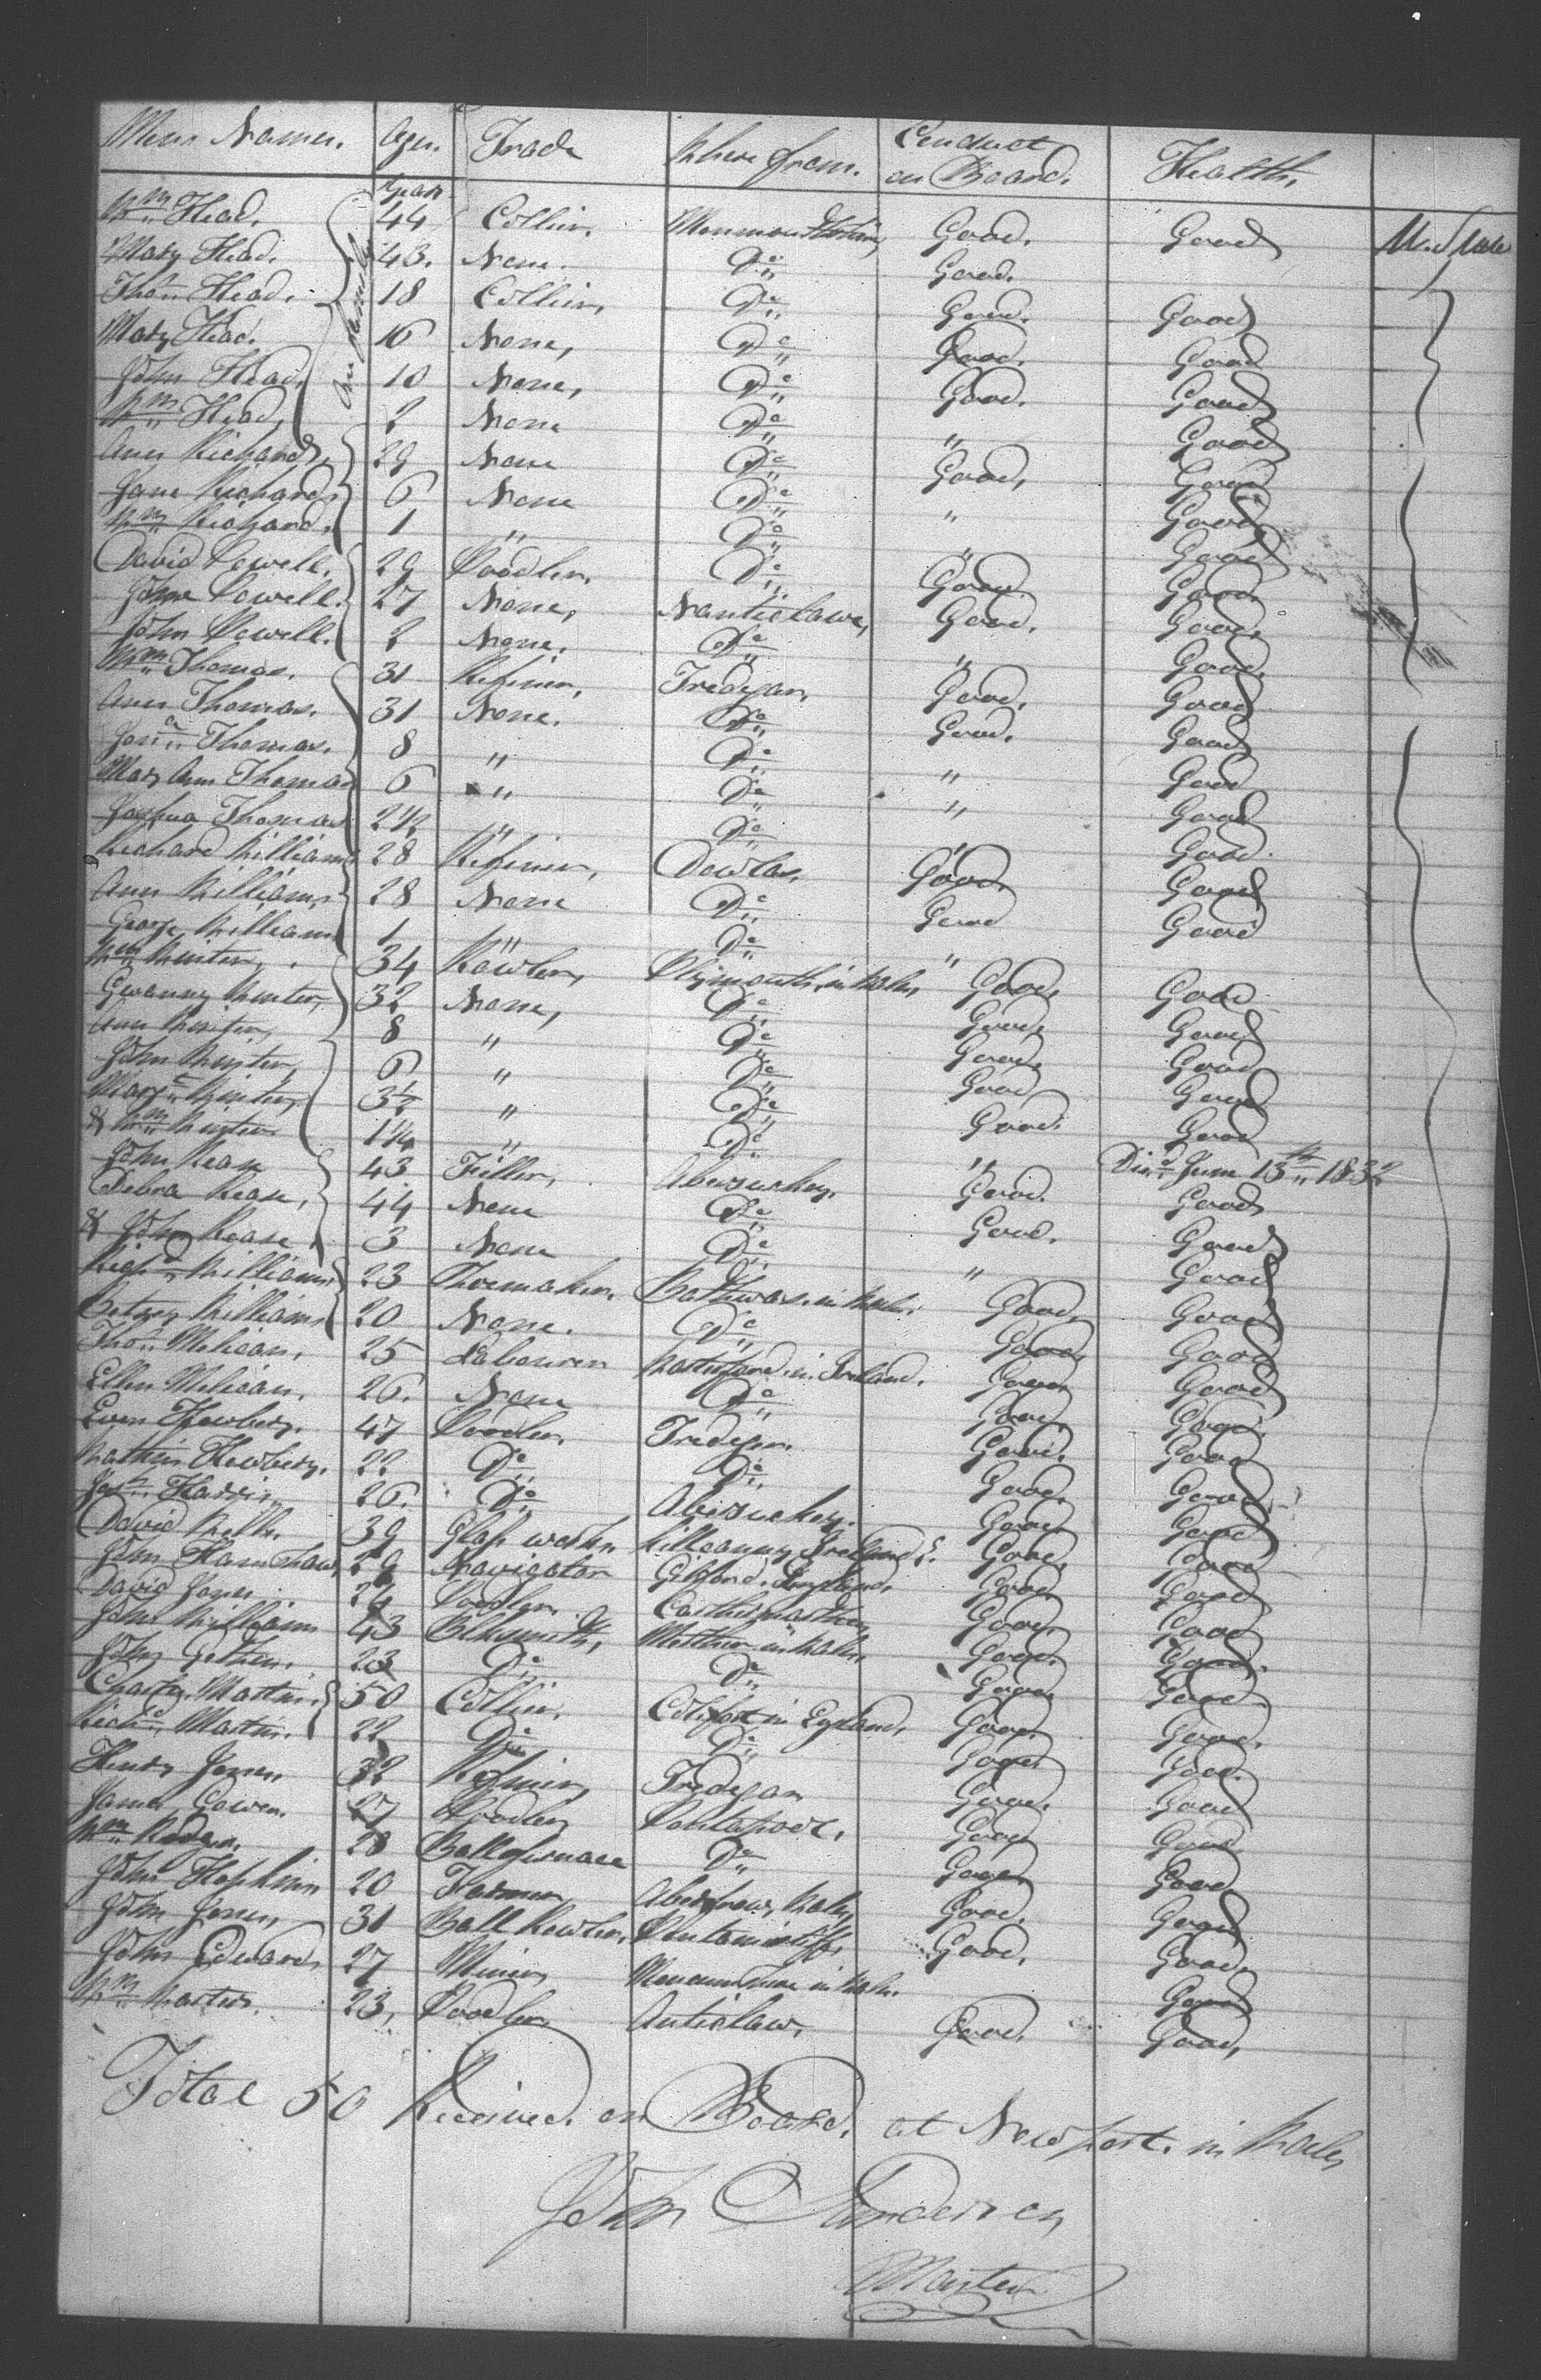 Mens Names. Ages. Trade Where from. Conduct on Board. Health.
Years
Wm Head. 44 Collier. Monmouthshire, Good. Good U. States
Mary Head. 43. None. Do Good.
Thos Head. 18 Collier, Do Good. Good
Mary Head. 16 None, Do Good. Good
John Head. 10 None, Do Good. Good
Wm Head, 2 None Do " Good
One family
Ann Richards, 29 None Do Good, Good
Jane Richards, 6 None Do " Good
Wm Richards, 1 " Do " Good
David Powell. 29 Poodler. Do Good. Good.
Powell. 27 None, Nantiglawe, Good. Good.
John Powell. 2 None. Do " Good.
Wm Thomas. 31 Refiner, Tredegar, Good. Good
Ann Thomas. 31 None. Do Good. Good
Thomas. 8 " Do " Good
Mary Ann Thomas 6 " Do " Good
Joshua Thomas 2½ " Do " Good
Richard Williams 28 Refiner, Dowlas, Good, Good
Ann Williams 28 None Do Good Good
George Williams 1 " Do "
Wm Winter, 34 Rowler, Plymouth, in Wales, Good, Good
Gwanny Winter, 32 None, Do Good, Good
Ann Winter, 8 " Do Good, Good
John Winter, 6 " Do Good Good
Margt Winter, 3½ " Do Good. Good
& Wm Winter 1¼ " Do " Died June 13th 1832
John Rease 43 Filler, Abersuchey. Good. Good
Debra Rease, 44 None Do Good. Good
& John Rease, 3 None Do " Good
Richd Williams 23 Shoemaker. in Wales. Good, Good
Betsey Williams 20 None. Do Good, Good
Thos Milican, 25 Labourer Watterford in Ireland. Good Good
Ellen Milican. 26. None Do Good, Good.
Even Hewbery. 47 Poodler Tredegar. Good. Good
Hewbery. 22 Do Do Good, Good,
Harris. 26. Do Abersuchey. Good, Good
David Webb. 39 Glass worker Killcanny Ireland Good, Good
John Hamshaw, 29 Navigator England, Good Good
David Jones 24 Poodler. Good, Good
John Williams 43 Blksmith, Merther in Wales. Good. Good.
John Gethen. 23 Do Do Good, Good
Charles Martin. 50 Collier. in England, Good, Good.
Richd Martin. 22 Do Do Good Good.
Henry Jones. 32 Refiner, Tredegar Good. Good
James Gowen. 27 Poodler Good Good
Wm 28 Ballefurnace Do Good, Good
John Hopkins 20 Farmer Wales, Good. Good
John Jones, 31 Ball Rowler. Good, Good,
John Edwards 27 Miner, in Wales. Good
Wm 23, Poodler Good, Good,
Total 50 Received. on Board. at Newport. in Wales
John Anderson
Master